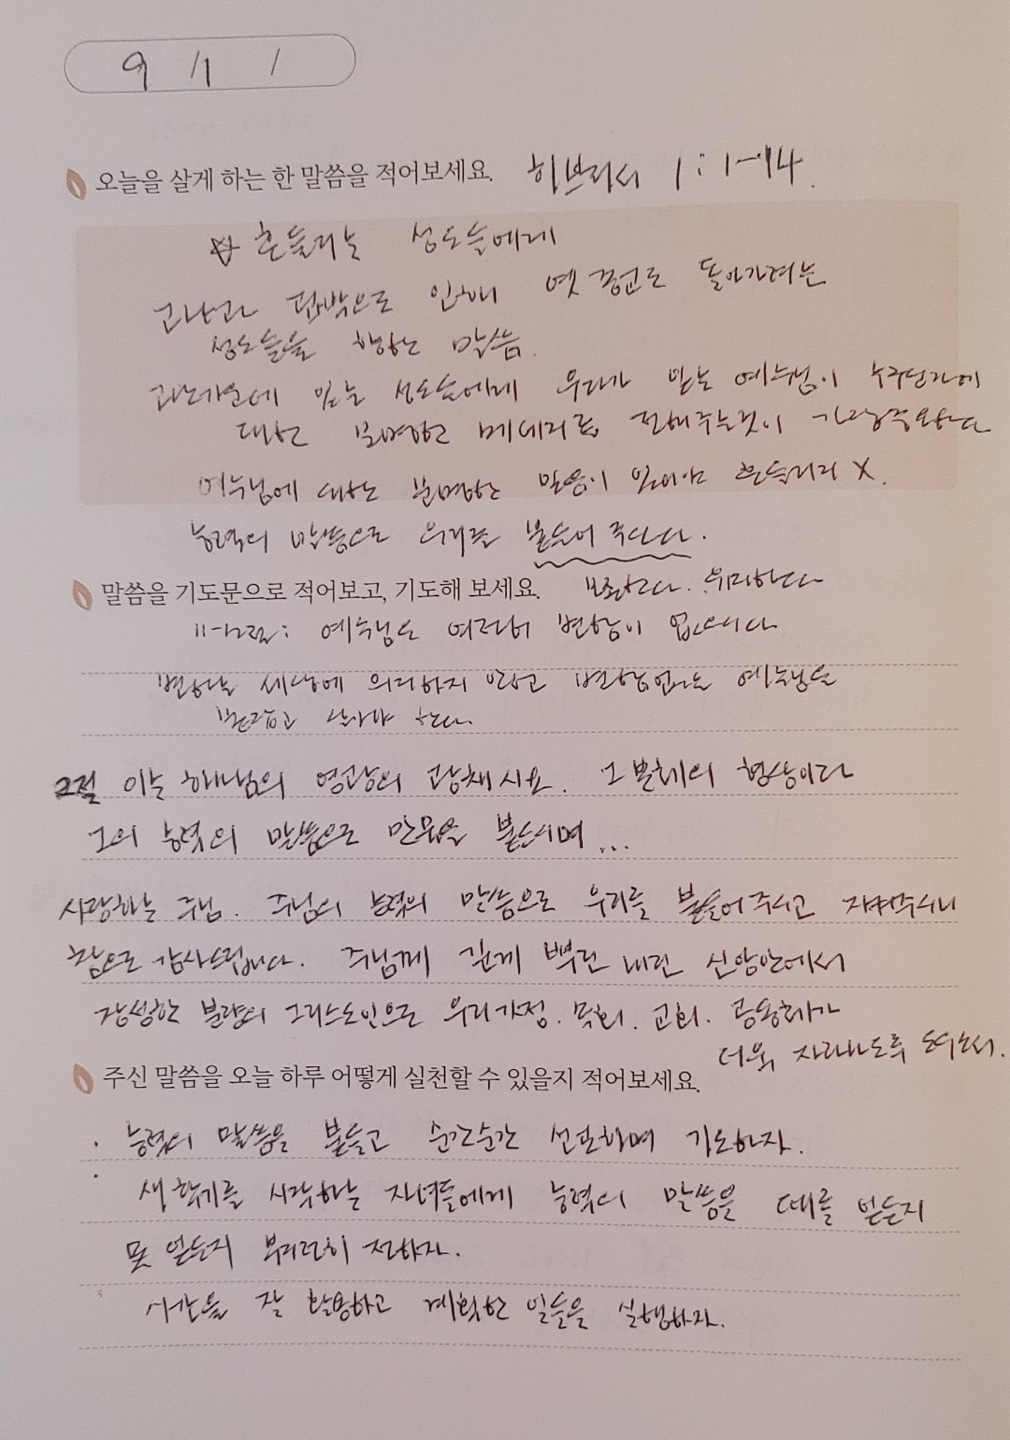 9 / 1 /
오늘을 살게 하는 한 말씀을 적어보세요. 히브리서 1:1-14.
☆ 흔들리는 성도들에게
고난과 핍박으로 인해 옛 종교로 돌아가려는
성도들을 향한 말씀.
고난가운데 있는 성도들에게 우리가 믿는 예수님이 누구신가에
대한 분명한 메세지를 전해주는것이 가장중요하다
예수님에 대한 분명한 믿음이 있어야 흔들리지 X.
능력의 말씀으로 우리를 붙들어 주신다.
말씀을 기도문으로 적어보고, 기도해 보세요. 보존한다. 유지한다
11-12절: 예수님은 여전히 변함이 없으시다
변하는 세상에 의지하지 않고 변함없는 예수님을
붙잡고 살아야 한다.
3절 이는 하나님의 영광의 광채시요. 그 본체의 형상이라
그의 능력의 말씀으로 만물을 붙드시며...
사랑하는 주님. 주님의 능력의 말씀으로 우리를 붙들어주시고 지켜주시니
참으로 감사드립니다. 주님께 깊게 뿌리 내린 신앙안에서
장성한 분량의 그리스도인으로 우리가정. 목회. 교회. 공동체가
더욱 자라나도록 도우소서.
주신 말씀을 오늘 하루 어떻게 실천할 수 있을지 적어보세요.
· 능력의 말씀을 붙들고 순간순간 선포하며 기도하자.
· 새학기를 시작하는 자녀들에게 능력의 말씀을 때를 얻든지
못 얻든지 부지런히 전하자.
시간을 잘 활용하고 계획한 일들을 실행하자.